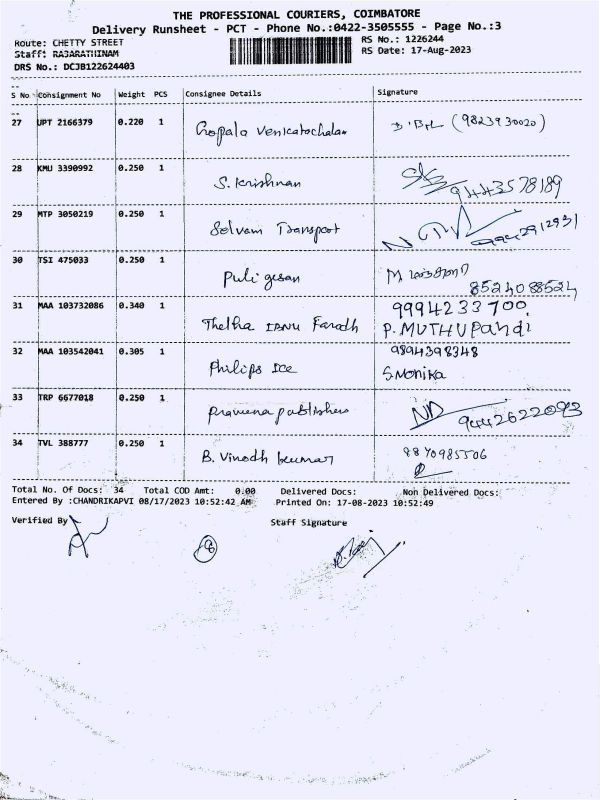 THE PROFESSIONAL COURIERS, COIMBATORE
Delivery Runsheet - PCT - Phone No.:0422-3505555 - Page No.:3
Route: CHETTY STREET
RS No.: 1226244
Staff: RAJARATHINAM
RS Date: 17-Aug-2023
DRS No.: DCJB122624403
S No Consignment No Weight PCS Consignee Details Signature
27 UPT 2166379 0.220 1 Gopala Venkatachalam (9823930020)
28 KMU 3390992 0.250 1 S. Krishnan 9443578189
29 MTP 3050219 0.250 1 Selvam Transport
30 TSI 475033 0.250 1 Puli gesan M 8524088524
31 MAA 103732086 0.340 1 9994233700.
P. MUTHUPandi
32 MAA 103542041 0.305 1 Philips Ice 9894398348
S.Monika
33 TRP 6677018 0.250 1 praveena publishers 9442622093
34 TVL 388777 0.250 1 B. Vinodh kumar 8870985506
Total No. Of Docs: 34 Total COD Amt: 0.00 Delivered Docs: Non Delivered Docs:
Entered By :CHANDRIKAPVI 08/17/2023 10:52:42 AM Printed On: 17-08-2023 10:52:49
Verified By Staff Signature